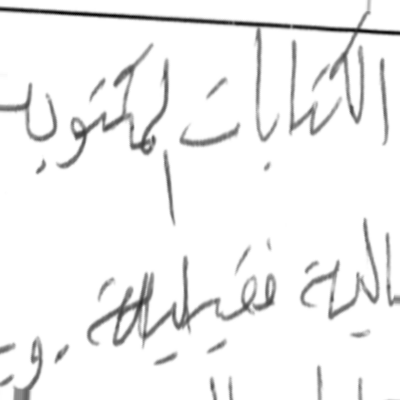 الكتابات المكتوب
الية فقليلة . و